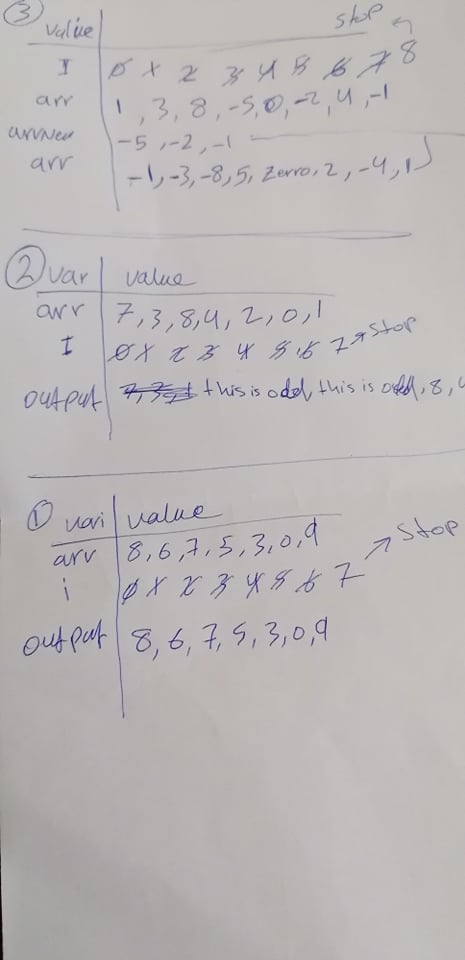 ③ value stop
I 0 1 2 3 4 5 6 7 8
arr 1, 3, 8, -5, 0, -2, 4, -1
arrNew -5, -2, -1
arr -1, -3, -8, 5, Zerro, 2, -4, 1
② var value
arr 7, 3, 8, 4, 2, 0, 1
I 0 1 2 3 4 5 6 7 stop
output this is odd, this is odd, 8, 4
① vari value
arr 8, 6, 7, 5, 3, 0, 9 stop
i 0 1 2 3 4 5 6 7
output 8, 6, 7, 5, 3, 0, 9